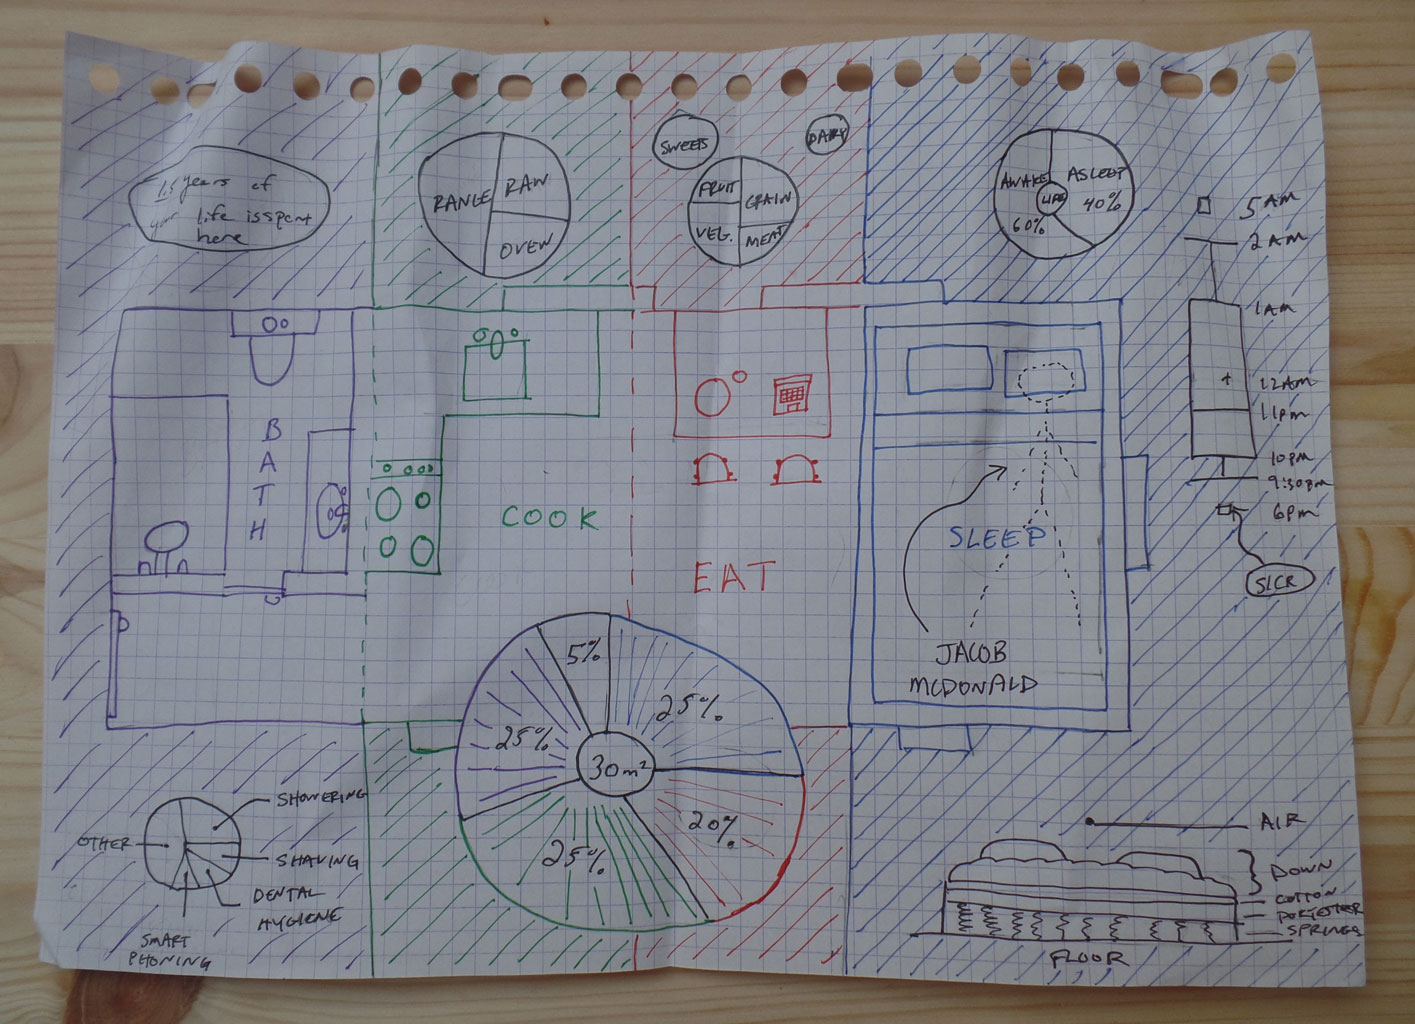 1.5 years of
your life is spent
here
RANGE
RAW
OVEN
SWEETS
DAIRY
FRUIT
GRAIN
VEG.
MEAT
AWAKE
60%
LIFE
ASLEEP
40%
5AM
2AM
1AM
12AM
11pm
10pm
9:30pm
6pm
SLCR
BATH
COOK
EAT
SLEEP
JACOB
MCDONALD
5%
25%
25%
30m²
20%
25%
SHOWERING
OTHER
SHAVING
DENTAL
HYGIENE
SMART
PHONING
AIR
DOWN
COTTON
POLYESTER
SPRINGS
FLOOR